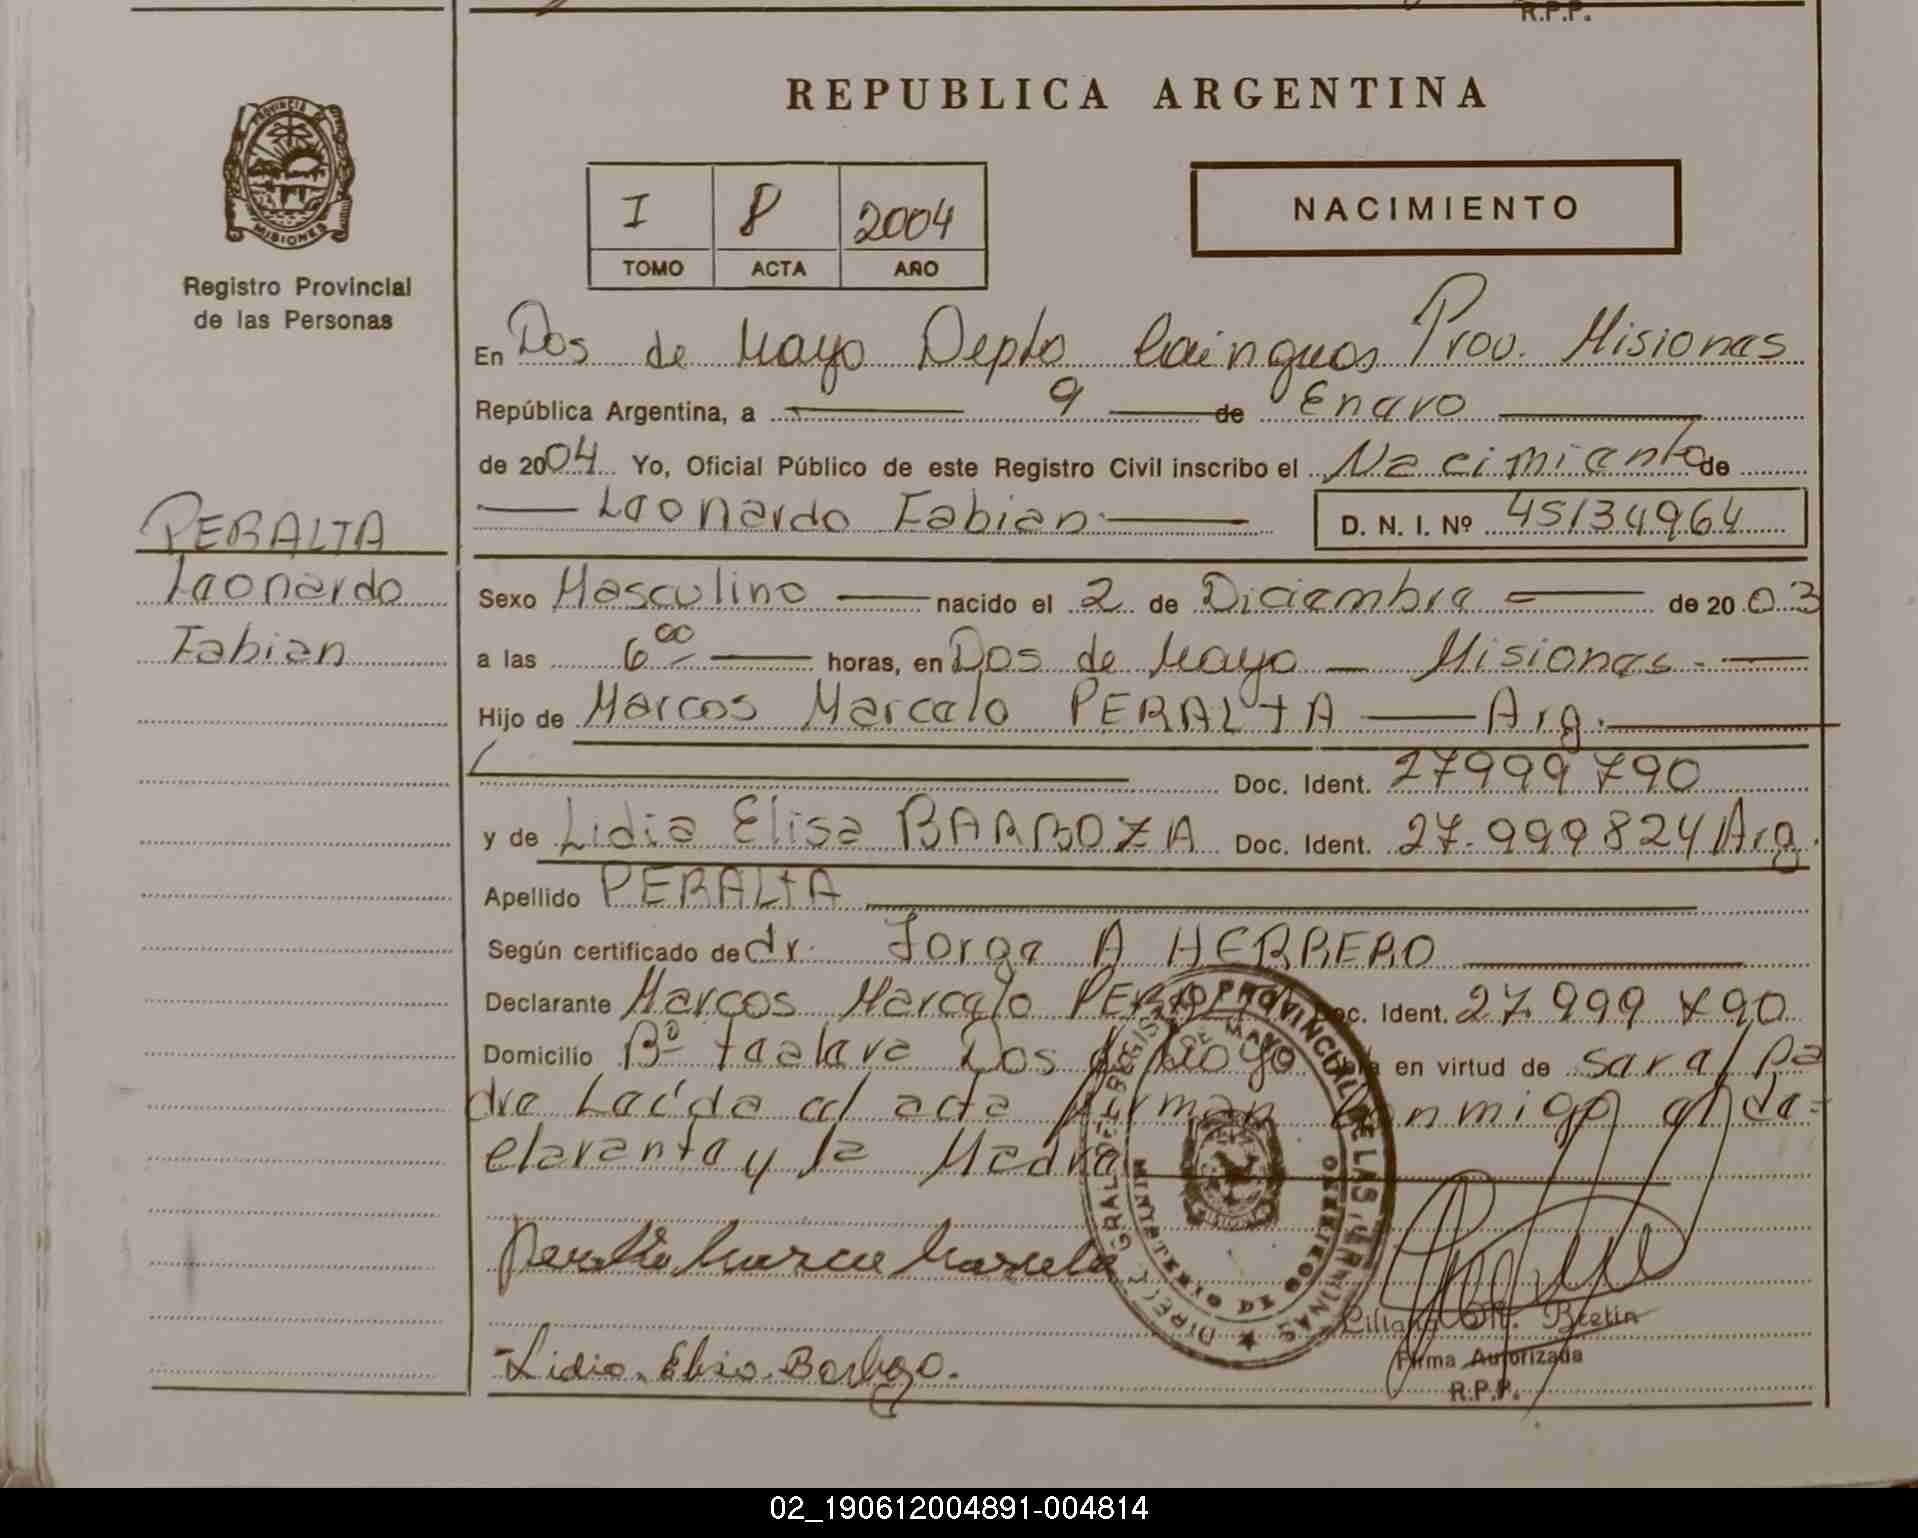 R.P.P.
REPUBLICA ARGENTINA
PROVINCIA DE
MISIONES
Registro Provincial
de las Personas
I 8 2004
TOMO ACTA AÑO
NACIMIENTO
En Dos de Mayo Depto Cainguas Prov. Misiones
República Argentina, a 9 de Enero
de 2004 Yo, Oficial Público de este Registro Civil inscribo el Nacimiento de
Leonardo Fabian D. N. I. Nº 45134964
PERALTA
Leonardo
Fabian
Sexo Masculino nacido el 2 de Diciembre de 20 03
a las 6 00 horas, en Dos de Mayo - Misiones.
Hijo de Marcos Marcelo PERALTA Arg.
Doc. Ident. 27999790
y de Lidia Elisa BARBOZA Doc. Ident. 27.999824 Arg.
Apellido PERALTA
Según certificado de dr. Jorge A HERRERO
Declarante Marcos Marcelo PERALTA Doc. Ident. 27.999 790
Domicilio Bº Dos de Mayo en virtud de ser el pa
dre Leída el acta firman conmigo el de=
clarante y la Madre
Peralta Marcos Marcelo
Lidia Elisa Barboza.
DIREC. GRAL. DEL REGISTRO PROVINCIAL DE LAS PERSONAS
DOS DE MAYO
MINISTERIO DE GOBIERNO
Liliana M. Bretin
Firma Autorizada
R.P.P.
02_190612004891-004814